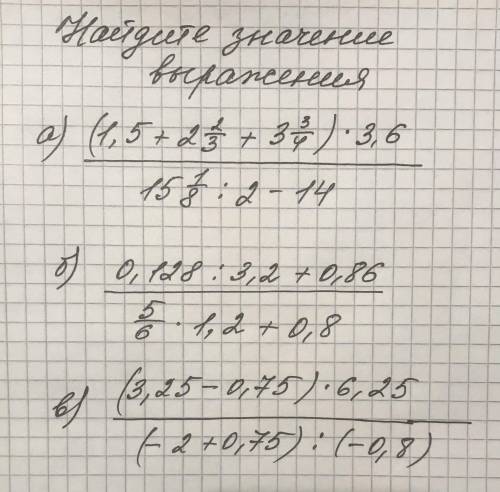 Найдите значение
выражения
а) (1,5 + 2 2/3 + 3 3/4) · 3,6
15 1/8 : 2 - 14
б) 0,128 : 3,2 + 0,86
5/6 · 1,2 + 0,8
в) (3,25 - 0,75) · 6,25
(- 2 + 0,75) : (-0,8)